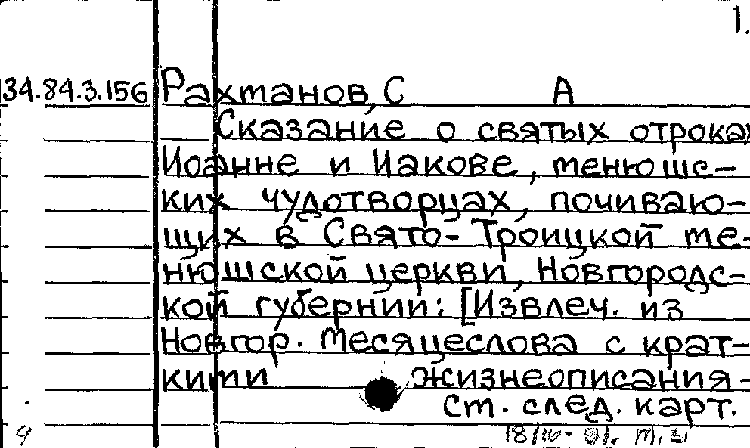 1.
34.84.3.156 Рахтанов, С А
Сказание о святых отроках
Иоанне и Иакове, менюшс-
ких чудотворцах, почиваю-
щих в Свято-Троицкой ме-
нюшской церкви, Новгородс-
кой губернии: [Извлеч. из
Новгор. месяцеслова с крат-
кими жизнеописания-
см. след. карт.